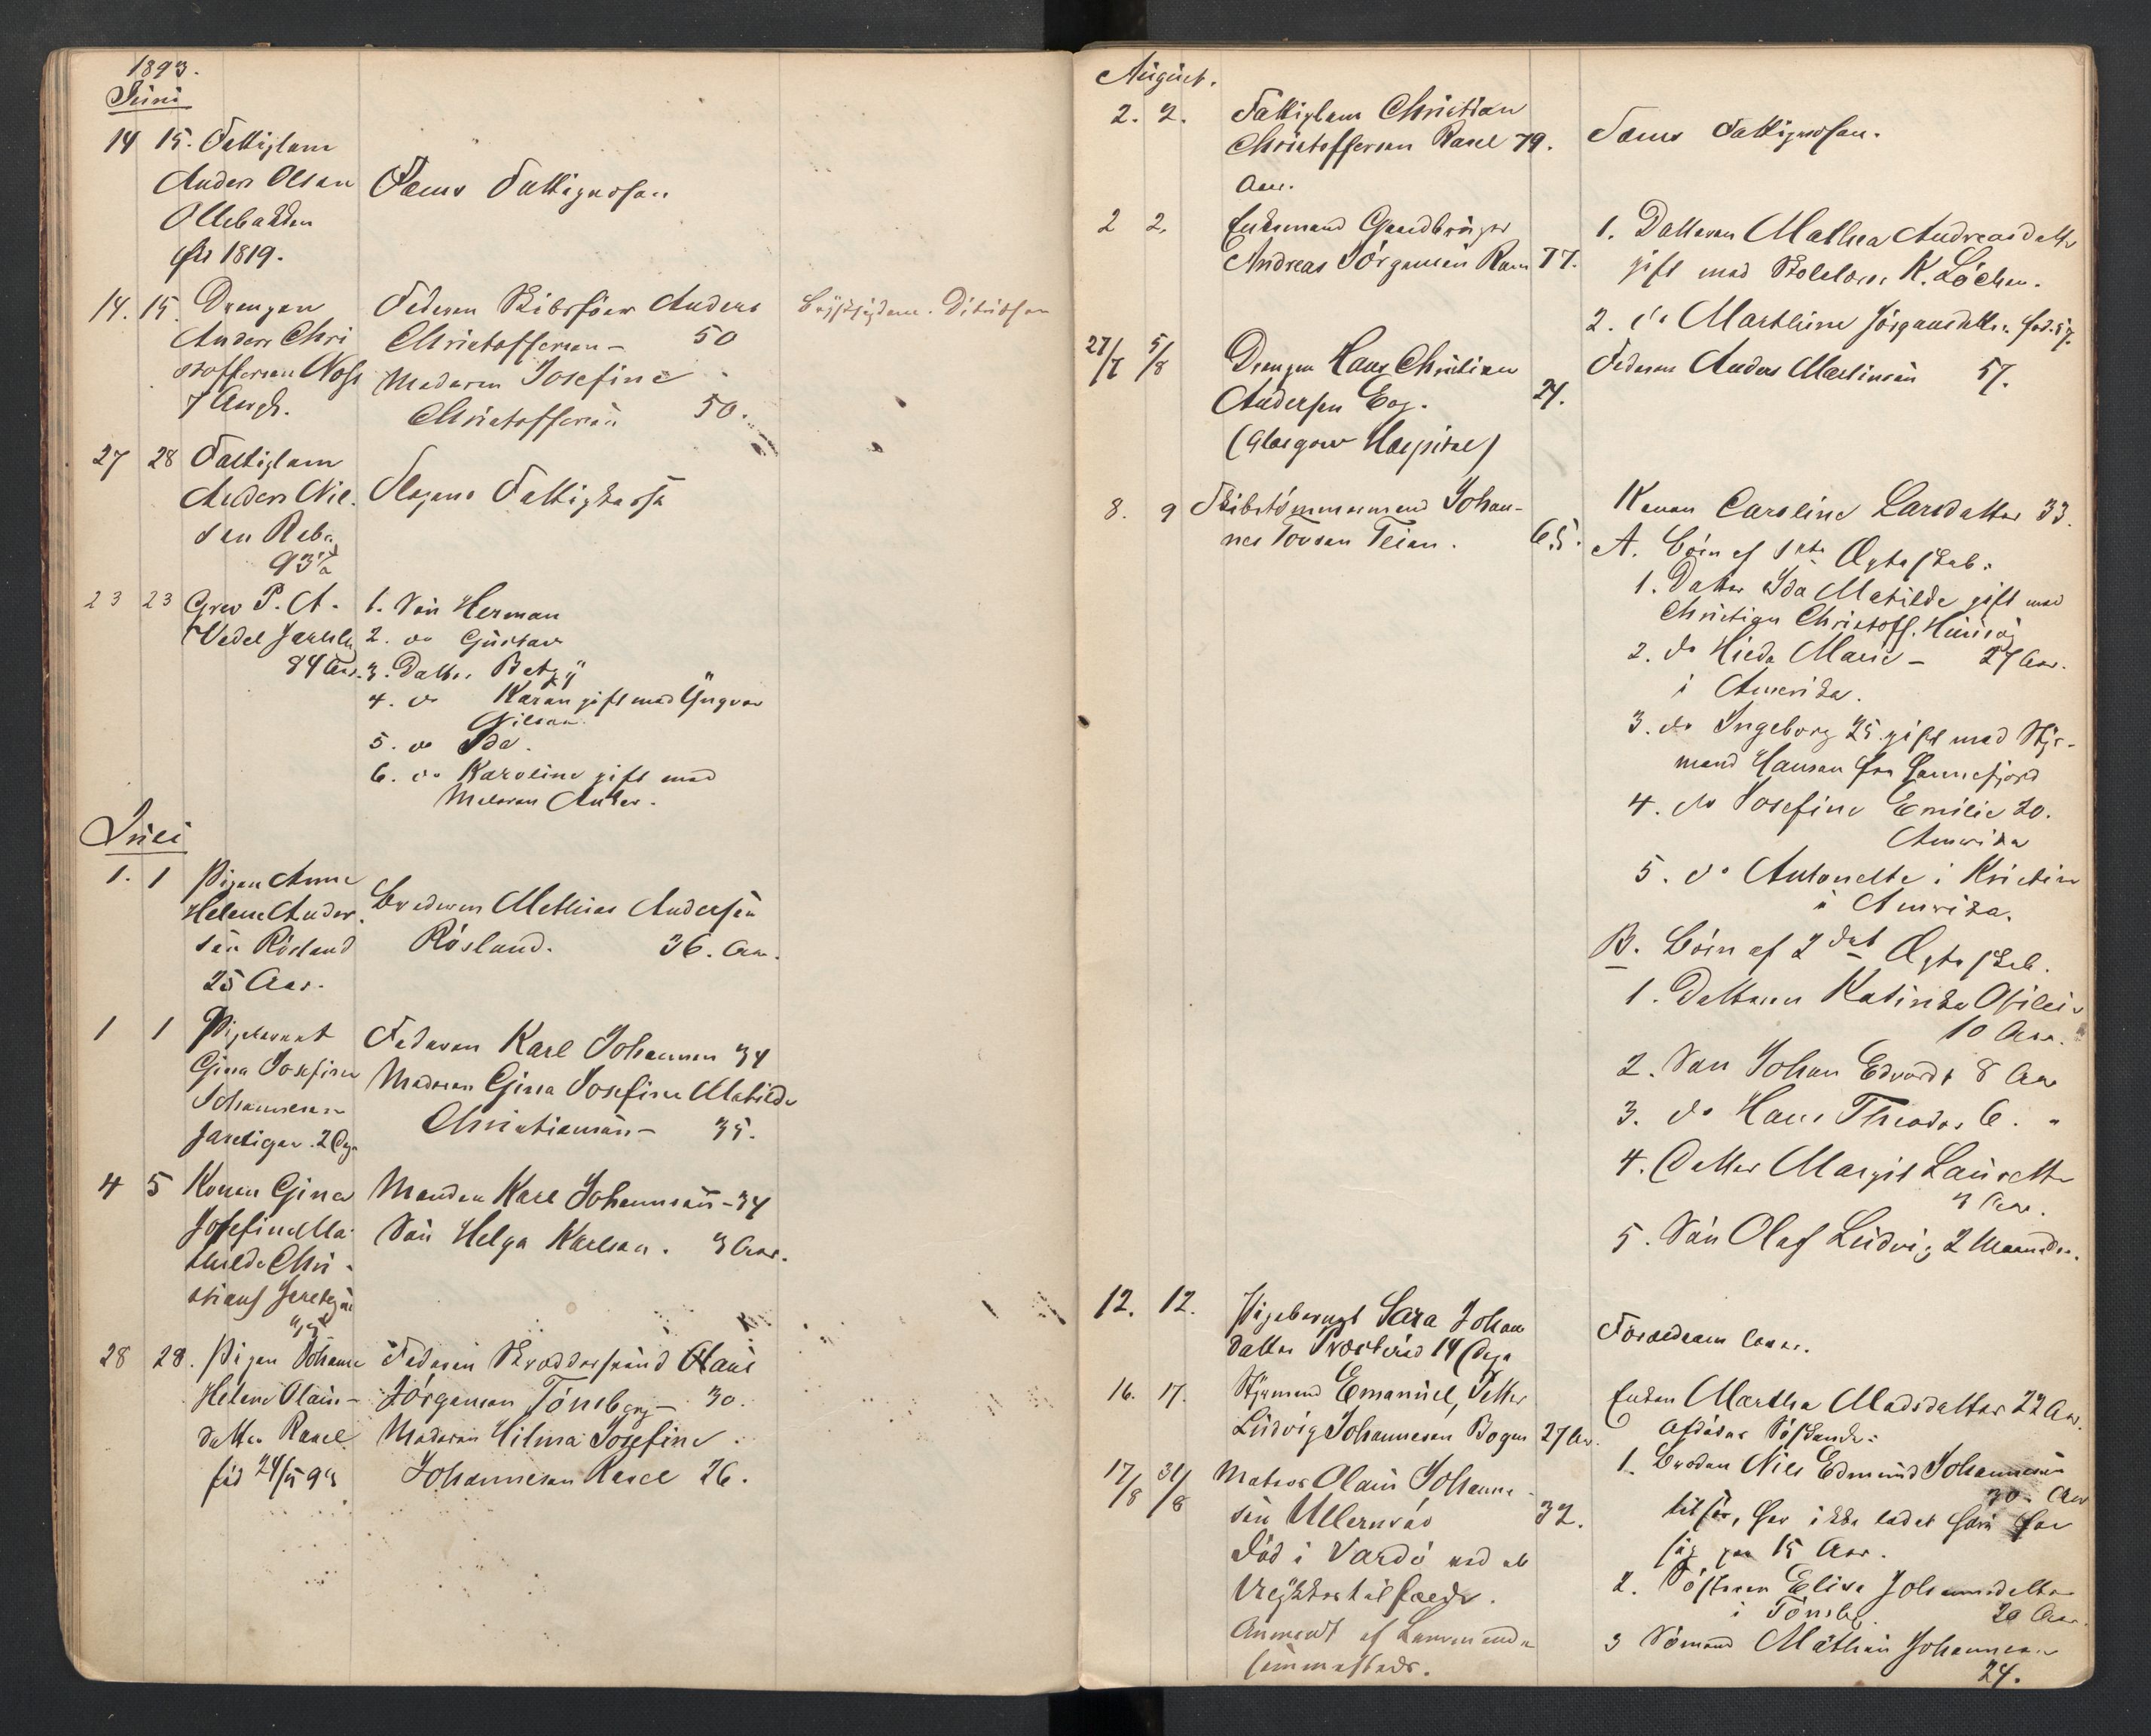 1893.
Juni
14 15. Fattiglem
Anders Olsen
Ollebakken
født 1819.
Sems Fattigvæsen
14. 15. Drengen
Anders Chri
stoffersen
7 Aar gl.
Faderen Skibsfører Anders
Christoffersen - 50
Moderen Josefine
Christoffersen 50.
27 28 Fattiglem
Anders Niel
sen
93 a
Slagens Fattigkasse
23 23 Grev P. A.
Vedel Jarlsb
84 Aar.
1. Søn Herman
2. do Gustav
3. Datter Betzy
4. do Karen gift med Yngvar
Nielsen
5. do Ida.
6. do Karoline gift med
Anker.
Juli
1. 1 Pigen Anne
Helene Ander
sen Røsland
25 Aar.
Broderen Mathias Andersen
Røsland. 36. Aar.
1 1 Pigebarnet
Gina Josefine
Johannesen
2 Dage
Faderen Karl Johannesen 34
Moderen Gina Josefine Matilde
Christiansen - 35.
4 5 Konen Gina
Josefine Ma
thilde Chri-
stians
Manden Karl Johannesen - 34
Søn Helga Karlsen. 3 Aar.
28 28. Pigen Johanne
Helene Olaus-
datter Rasel
fød 24/5 93
Faderen Skræddersvend Olaus
Jørgensen Tönsberg - 30.
Moderen Hilma Josefine
Johannesen Rasel 26.
August.
2. 2. Fattiglem Christian
Christoffersen Rasel 79.
Aar.
Sems Fattigvæsen.
2 2. Enkemand Gaardbruger
Andreas Jörgensen Ram 77.
1. Datteren Mathea Andreasdatter
gift med K. Löchen.
2. do Marthine Jörgensdatter
27/7 5/8 Drengen Hans Christian
Andersen Eeg. 24.
(Glasgow Hospital)
Faderen Anders Martinsen 57.
8. 9 Skibstömmermand Johan-
nes Tovsen Teien. 65.
Konen Caroline Larsdatter 33.
A. Börn af 1ste Ægteskab:
1. Datter Ida Matilde gift med
Christian Christoff.
2. do Hilda Marie - 27 Aar.
i Amerika.
3. do Ingeborg 25 gift med Styr-
mand Hansen fra Sannefjord
4. do Josefine Emilie 20.
Amerika
5. do Antonette
i Amerika.
B. Börn af 2det Ægteskab.
1. Datteren Katinka Otilie
10 Aar.
2. Søn Johan Edvardt 8 Aar
3. do Hans Theodor 6. "
4. Datter Margit Laurette
3 Aar.
5. Søn Olaf Ludvig 2 Maaneder.
12. 12. Pigebarnet Sara Johan
datter 14 Dage
Forældrene lever.
16. 17. Styrmand Emanuel Petter
Ludvig Johannesen Bogen 27 Aar.
Enken Martha Madsdatter 22 Aar
Afdødes Söskende:
1. Broder Nils Edmund Johannesen
30 Aar
tilsøs, har ikke ladet høre fra
sig paa 15 Aar.
2. Søsteren Elise Johannesdatter
i Tönsbg. 20 Aar.
3 Sömand Mathias Johannesen
24.
17/8 31/8 Matros Olaus Johanne
sen Ullernrød 32.
Död i Vardö ved et
Ulykkestilfælde.
Anmeldt af Lensmanden
sammesteds.